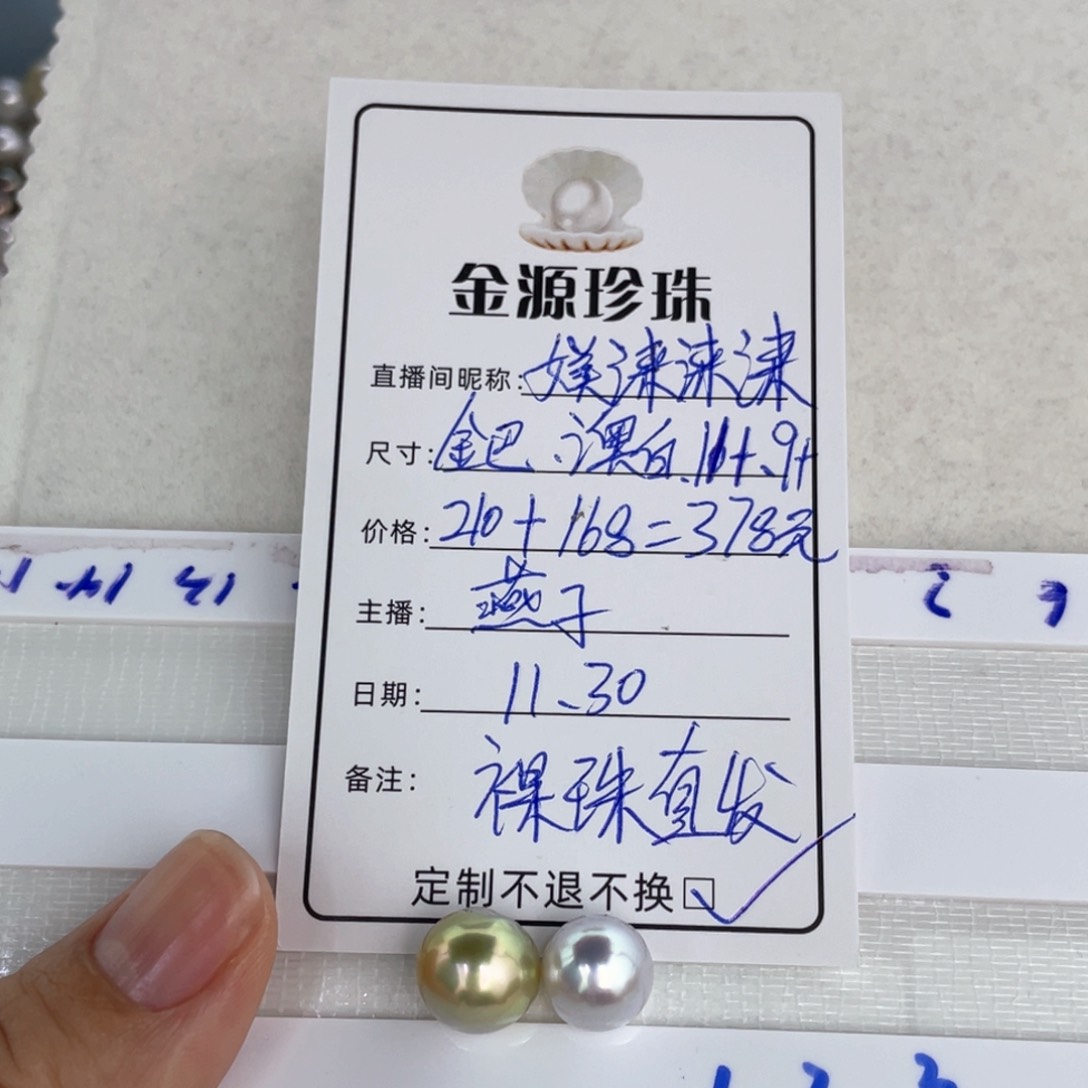 金源珍珠
直播间昵称：媄涞涞涞
尺寸：金巴、澳白 11+、9+
价格：210+168=378元
主播：燕子
日期：11、30
备注：裸珠直发
定制不退不换☑
13
2
1 2 3